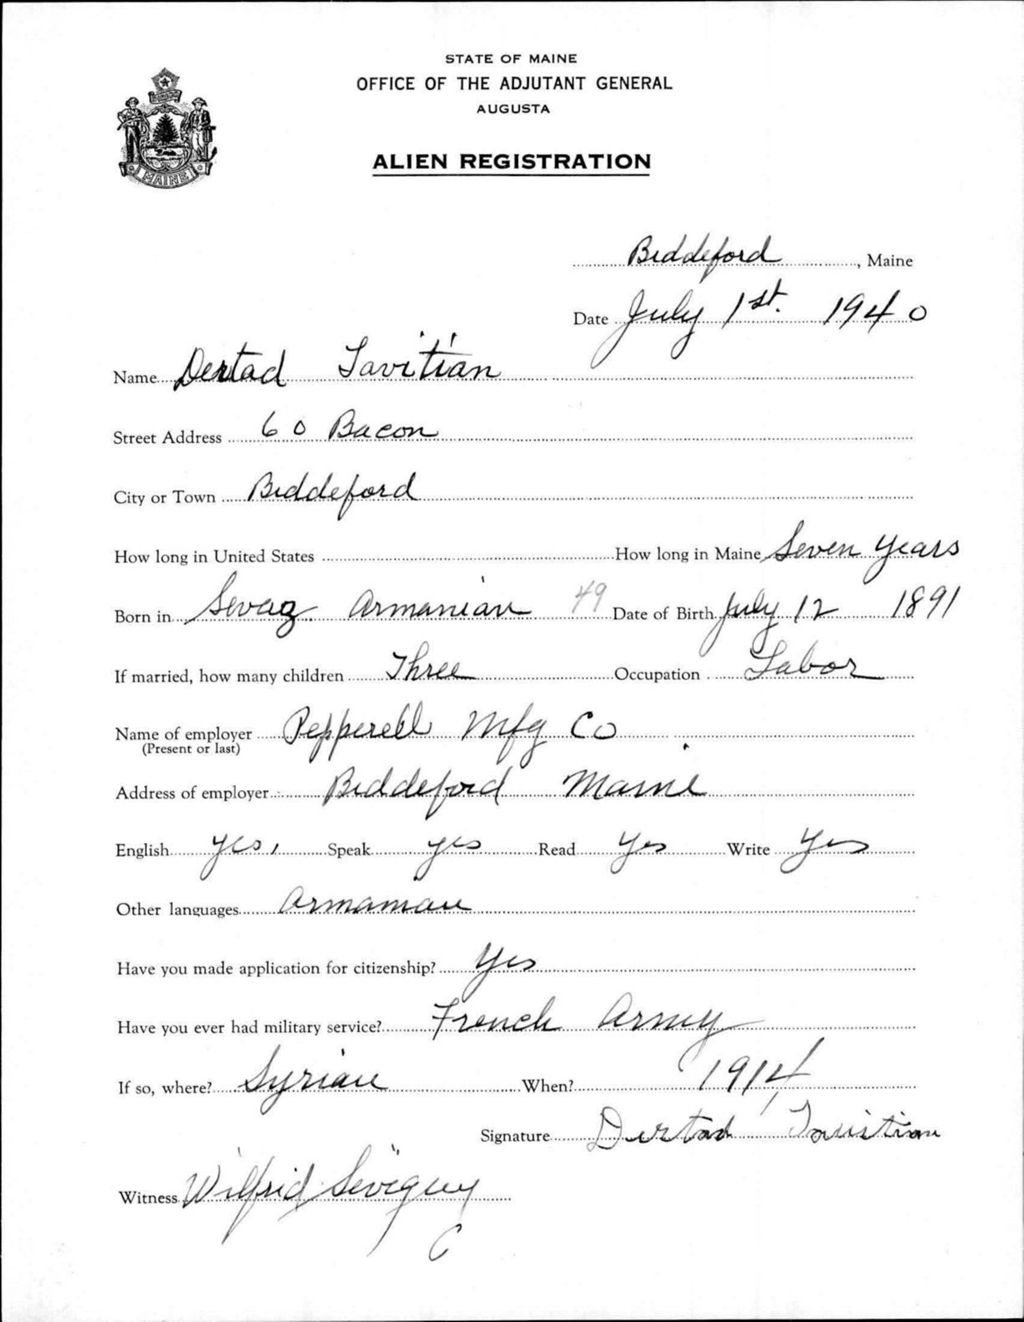 STATE OF MAINE
OFFICE OF THE ADJUTANT GENERAL
AUGUSTA
ALIEN REGISTRATION
MAINE
Biddeford, Maine
Date July 1st. 1940
Name Dertad Tavitian
Street Address 60 Bacon
City or Town Biddeford
How long in United States How long in Maine Seven years
Born in Sevag Armanian 49 Date of Birth July 12 1891
If married, how many children Three Occupation Labor
Name of employer Pepperell Mfg Co
(Present or last)
Address of employer Biddeford Maine
English yes, Speak yes Read yes Write yes
Other languages Armanian
Have you made application for citizenship? Yes
Have you ever had military service? French Army
If so, where? Syrian When? 1914
Signature Dertad
Witness Wilfrid Sévigny